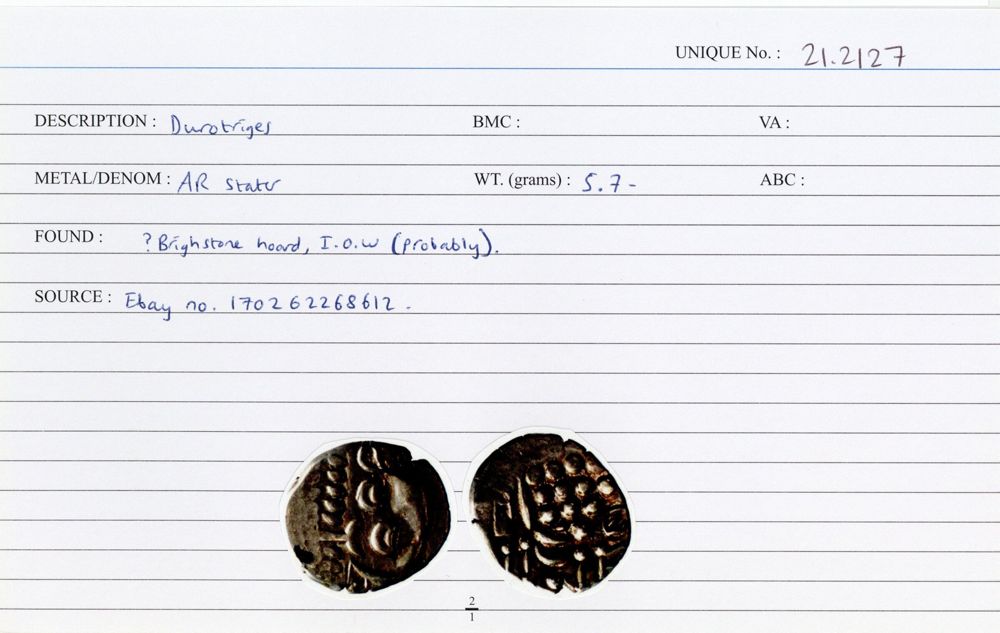 UNIQUE No. : 21.2127
DESCRIPTION : Durotriges BMC : VA :
METAL/DENOM : AR stater WT. (grams) : 5.7- ABC :
FOUND : ? Brighstone hoard, I.O.W (probably).
SOURCE : Ebay no. 170262268612.
2
1